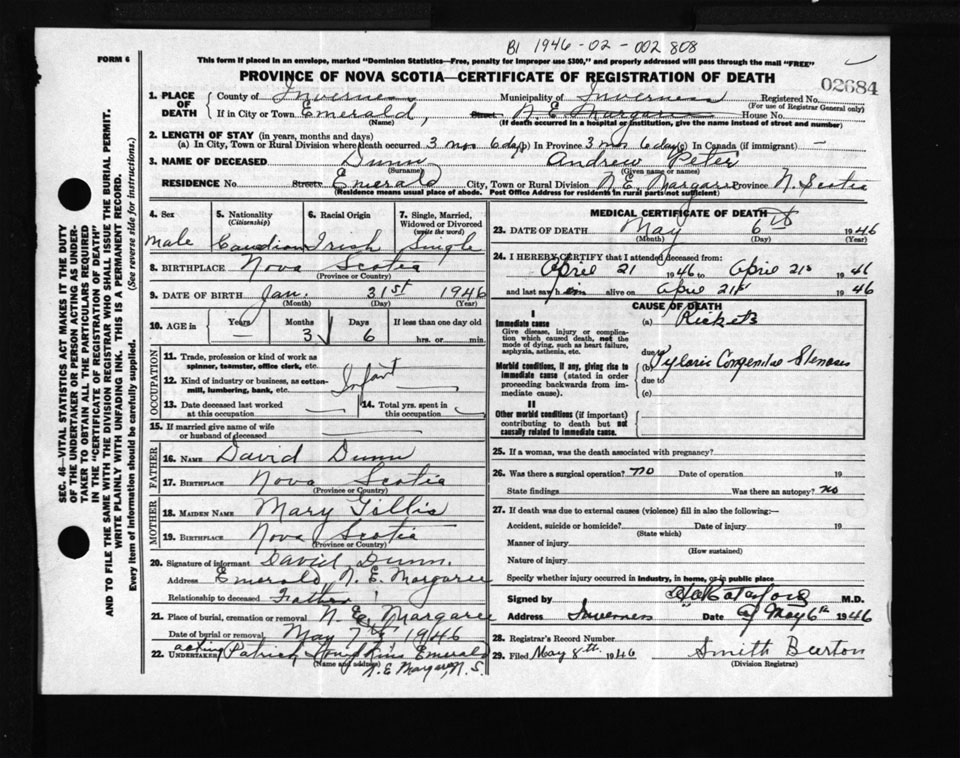 B1 1946-02-002808
FORM 6
This form if placed in an envelope, marked "Dominion Statistics—Free, penalty for improper use $300," and properly addressed will pass through the mail "FREE"
PROVINCE OF NOVA SCOTIA—CERTIFICATE OF REGISTRATION OF DEATH
02684
1. PLACE OF DEATH County of Inverness Municipality of Inverness Registered No.
(For use of Registrar General only)
If in City or Town Emerald, Street N. E. Margaree House No.
(Name) (If death occurred in a hospital or institution, give the name instead of street and number)
2. LENGTH OF STAY (in years, months and days)
(a) In City, Town or Rural Division where death occurred 3 mos 6 days (b) In Province 3 mos 6 days (c) In Canada (if immigrant) —
3. NAME OF DECEASED Dunn Andrew Peter
(Surname) (Given name or names)
RESIDENCE No. Street Emerald City, Town or Rural Division N. E. Margaree Province N. Scotia
(Residence means usual place of abode. Post Office Address for residents in rural parts not sufficient)
4. Sex
Male
5. Nationality
(Citizenship)
Canadian
6. Racial Origin
Irish
7. Single, Married, Widowed or Divorced
(write the word)
Single
8. BIRTHPLACE Nova Scotia
(Province or Country)
9. DATE OF BIRTH Jan. 31st 1946
(Month) (Day) (Year)
10. AGE in Years Months Days If less than one day old
— 3 6 hrs. or min.
OCCUPATION
11. Trade, profession or kind of work as
spinner, teamster, office clerk, etc.
12. Kind of industry or business, as cotton-
mill, lumbering, bank, etc. Infant
13. Date deceased last worked
at this occupation
14. Total yrs. spent in
this occupation
15. If married give name of wife
or husband of deceased
FATHER
16. NAME David Dunn
17. BIRTHPLACE Nova Scotia
(Province or Country)
MOTHER
18. MAIDEN NAME Mary Gillis
19. BIRTHPLACE Nova Scotia
(Province or Country)
20. Signature of informant David Dunn.
Address Emerald, N. E. Margaree
Relationship to deceased Father
21. Place of burial, cremation or removal N. E. Margaree
Date of burial or removal May 7th 1946
22. acting UNDERTAKER Patrick Emerald
(Name and address)
N. E. Margaree, N. S.
MEDICAL CERTIFICATE OF DEATH
23. DATE OF DEATH May 6th 1946
(Month) (Day) (Year)
24. I HEREBY CERTIFY that I attended deceased from:
April 21 1946 to April 21st 1946
and last saw him alive on April 21st 1946
CAUSE OF DEATH
I
Immediate cause (a) Rickets
Give disease, injury or complica-
tion which caused death, not the
mode of dying, such as heart failure,
asphyxia, asthenia, etc. due to
Morbid conditions, if any, giving rise to (b) Pyloric Congenital Stenosis
immediate cause (stated in order due to
proceeding backwards from im-
mediate cause). (c)
II
Other morbid conditions (if important)
contributing to death but not
causally related to immediate cause.
25. If a woman, was the death associated with pregnancy?
26. Was there a surgical operation? no Date of operation 19
State findings Was there an autopsy? no
27. If death was due to external causes (violence) fill in also the following:—
Accident, suicide or homicide? Date of injury 19
(State which)
Manner of injury
(How sustained)
Nature of injury
Specify whether injury occurred in industry, in home, or in public place
Signed by M.D.
Address Inverness Date May 6th 1946
28. Registrar's Record Number
29. Filed May 8th. 1946 Smith Burton
(Division Registrar)
SEC. 46—VITAL STATISTICS ACT MAKES IT THE DUTY
OF THE UNDERTAKER OR PERSON ACTING AS UNDER-
TAKER TO OBTAIN ALL THE PARTICULARS REQUIRED
IN THE "CERTIFICATE OF REGISTRATION OF DEATH"
AND TO FILE THE SAME WITH THE DIVISION REGISTRAR WHO SHALL ISSUE THE BURIAL PERMIT.
WRITE PLAINLY WITH UNFADING INK. THIS IS A PERMANENT RECORD.
Every item of information should be carefully supplied. (See reverse side for instructions.)